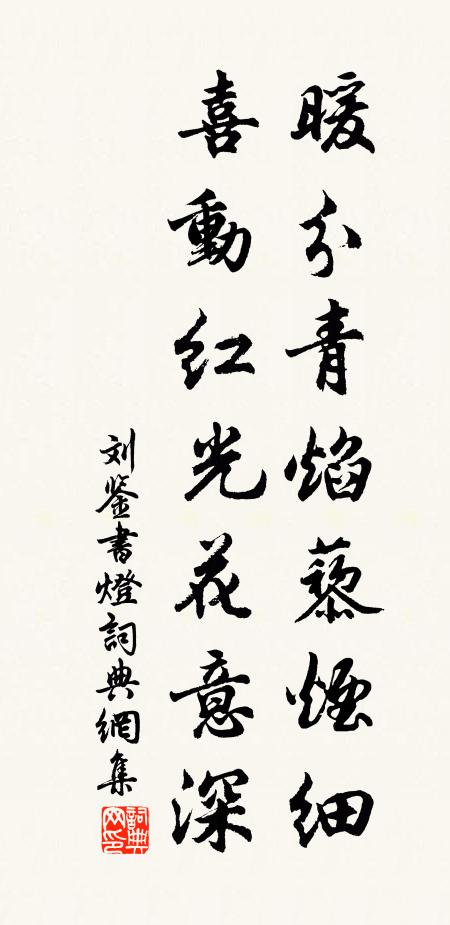 暖分青焰藜煙細
喜動红光花意深
刘鉴書燈詞典網集
詞典网印